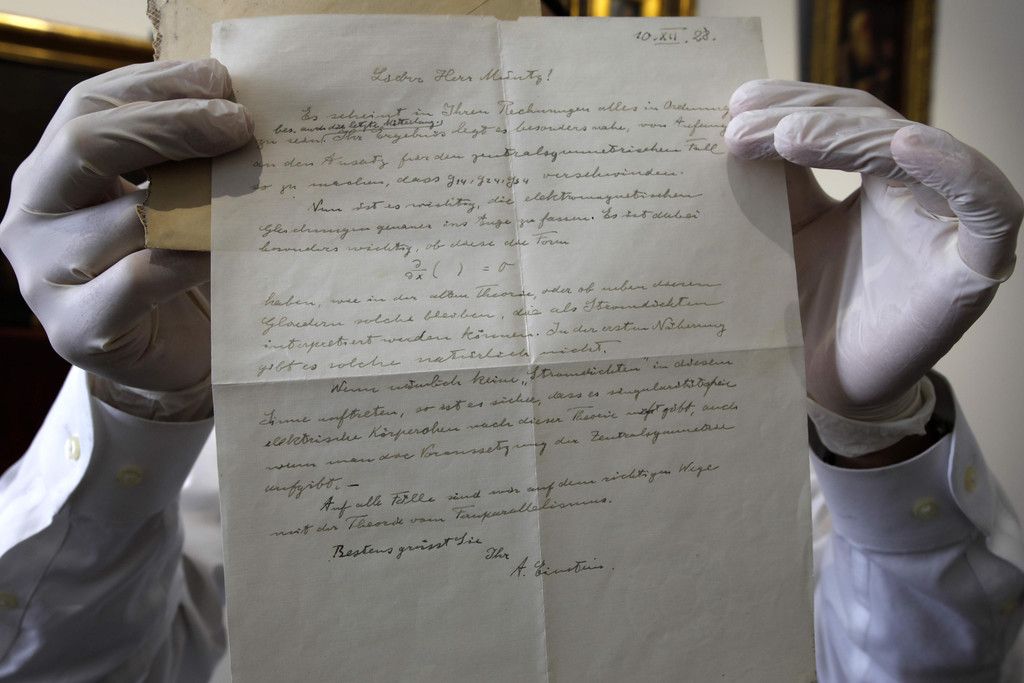 10.XII.28.
Lieber Herr Müntz!
Es scheint in Ihren Rechnungen alles in Ordnung
bes. auch die letzte Mitteilung
zu sein. Ihr Ergebnis legt es besonders nahe, von Anfang
an den Ansatz für den zentralsymmetrischen Fall
so zu machen, dass g14, g24, g34 verschwinden.
Nun ist es wichtig, die elektromagnetischen
Gleichungen genauer ins Auge zu fassen. Es ist dabei
besonders wichtig, ob diese die Form
∂/∂x ( ) = 0
haben, wie in der alten Theorie, oder ob neben diesen
Gliedern solche bleiben, die als Stromdichten
interpretiert werden können. In der ersten Näherung
gibt es solche natürlich nicht.
Wenn nämlich keine „Stromdichten" in diesem
Sinne auftreten, so ist es sicher, dass es singularitätsfreie
elektrische Körperchen nach dieser Theorie nicht gibt, auch
wenn man die Voraussetzung der Zentralsymmetrie
aufgibt. —
Auf alle Fälle sind wir auf dem richtigen Wege
mit der Theorie vom Fernparallelismus.
Bestens grüsst Sie
Ihr
A. Einstein.